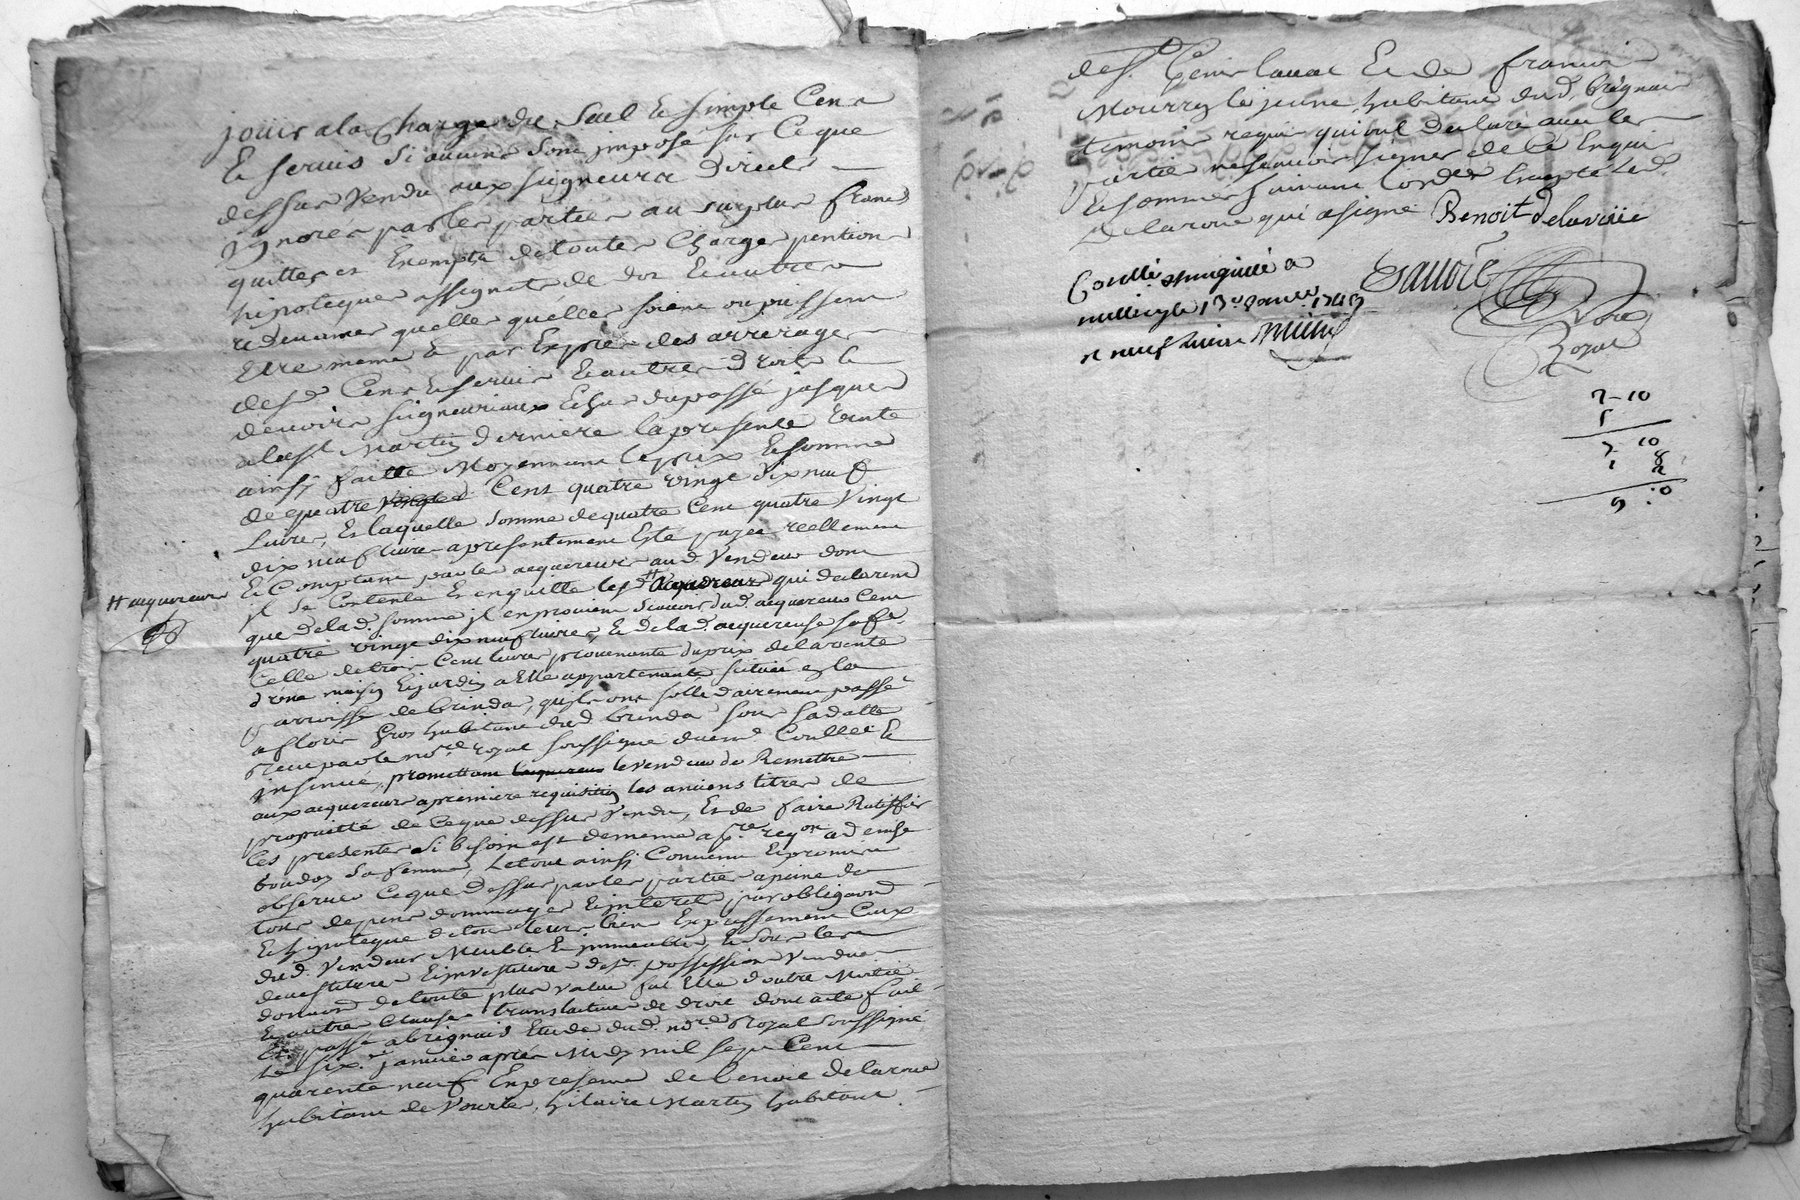 jouir a la Charge du Seul et simple Cens
Et servis si aucuns sont imposé sur Ceque
dessus Vendu aux seigneurs directs
ignorés par les parties au surplus francs
quittes et Exempts de toutes Charges pentions
hipoteques assignats de dot Et autres
redevances quelles quelles soient ou puissent
Etre meme Et par Exprés des arrerages
desd. Cens Et servis Et autres droits Et
devoirs seigneuriaux Echus du passé jusques
a la st Martin derniere la presente Vente
ainsy faitte Moyennant le prix Et somme
de quatre Cent quatre vingt dix neuf
Livres, Et laquelle somme de quatre Cent quatre Vingt
dix neuf livres a presentement Esté payée reellement
Et Comptant par les acquereurs aud. Vendeur dont
il se Contente Et en quitte lesd. # qui declarent
# acquereurs
que de lad. somme il en provient scavoir dud. acquereur Cent
quatre vingt dix neuf livres, Et de lad. acquereuse sa fe.
Celle de trois Cent livres provenante du prix de la vente
d'une maison Et jardin a Elle appartenante scituée en la
parroisse de brindas, quils ont sollidairement passé
a floris Gros habitant dud. brindas sous sa datte
receu par le nore. royal soussigné duement Conllé Et
insinué, promettant le vendeur de Remettre
aux acquereurs a premiere requisition les anciens titres de
proprietté de Ceque dessus Vendu, Et de faire Ratiffier
Ces presentes si besoin est de meme a pre. reqon. a
boudon sa femme, Le tout ainsy Convenu Et promis
observer Ceque dessus par les parties a peine de
tous depens dommages Et interets, par obligaon.
Et hipoteque de tous leurs biens Expressement Ceux
dud. Vendeur Meubles Et immeubles, Et sous les
devestiture Et investiture desd. possessions Vendues
donation de toute plus value fut Elle d'outre Moitié
Et autres Clauses translatives de droit dont acte fait
Et passé a brignais Etude dud. nore. Royal soussigné
Le six.e janvier aprés Midy mil sept Cent
quarente neuf En presence de benoit delaroüe
habitant de Vourles, hilaire Martin habitant
de st. Genis laval Et de francois
Mourry le jeune habitant dud. brignais
temoins requis qui ont declaré avec les
parties ne scavoir signer de Ce Enquis
Et sommés suivant l'ordce. Excepté led.
Delaroue qui a signé Benoit delaroüe
Conllé et insinué a
millery le 13e janvier 1749
R neuf livres
Nore
Royal
7-10
7 10
9 :0